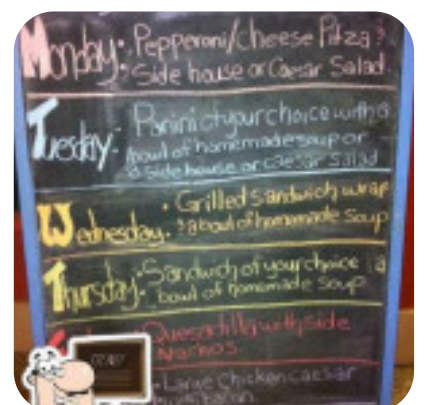 Monday: Pepperoni/Cheese Pitza &
Side house or Caesar Salad
Tuesday: Panini of your choice with a
bowl of homemade soup or
a side house or caesar salad
Wednesday: Grilled Sandwich wrap
& a bowl of homemade Soup
Thursday: Sandwich of your choice & a
bowl of homemade soup
Quesadilla with side
Nachos
Large Chicken caesar
bacon